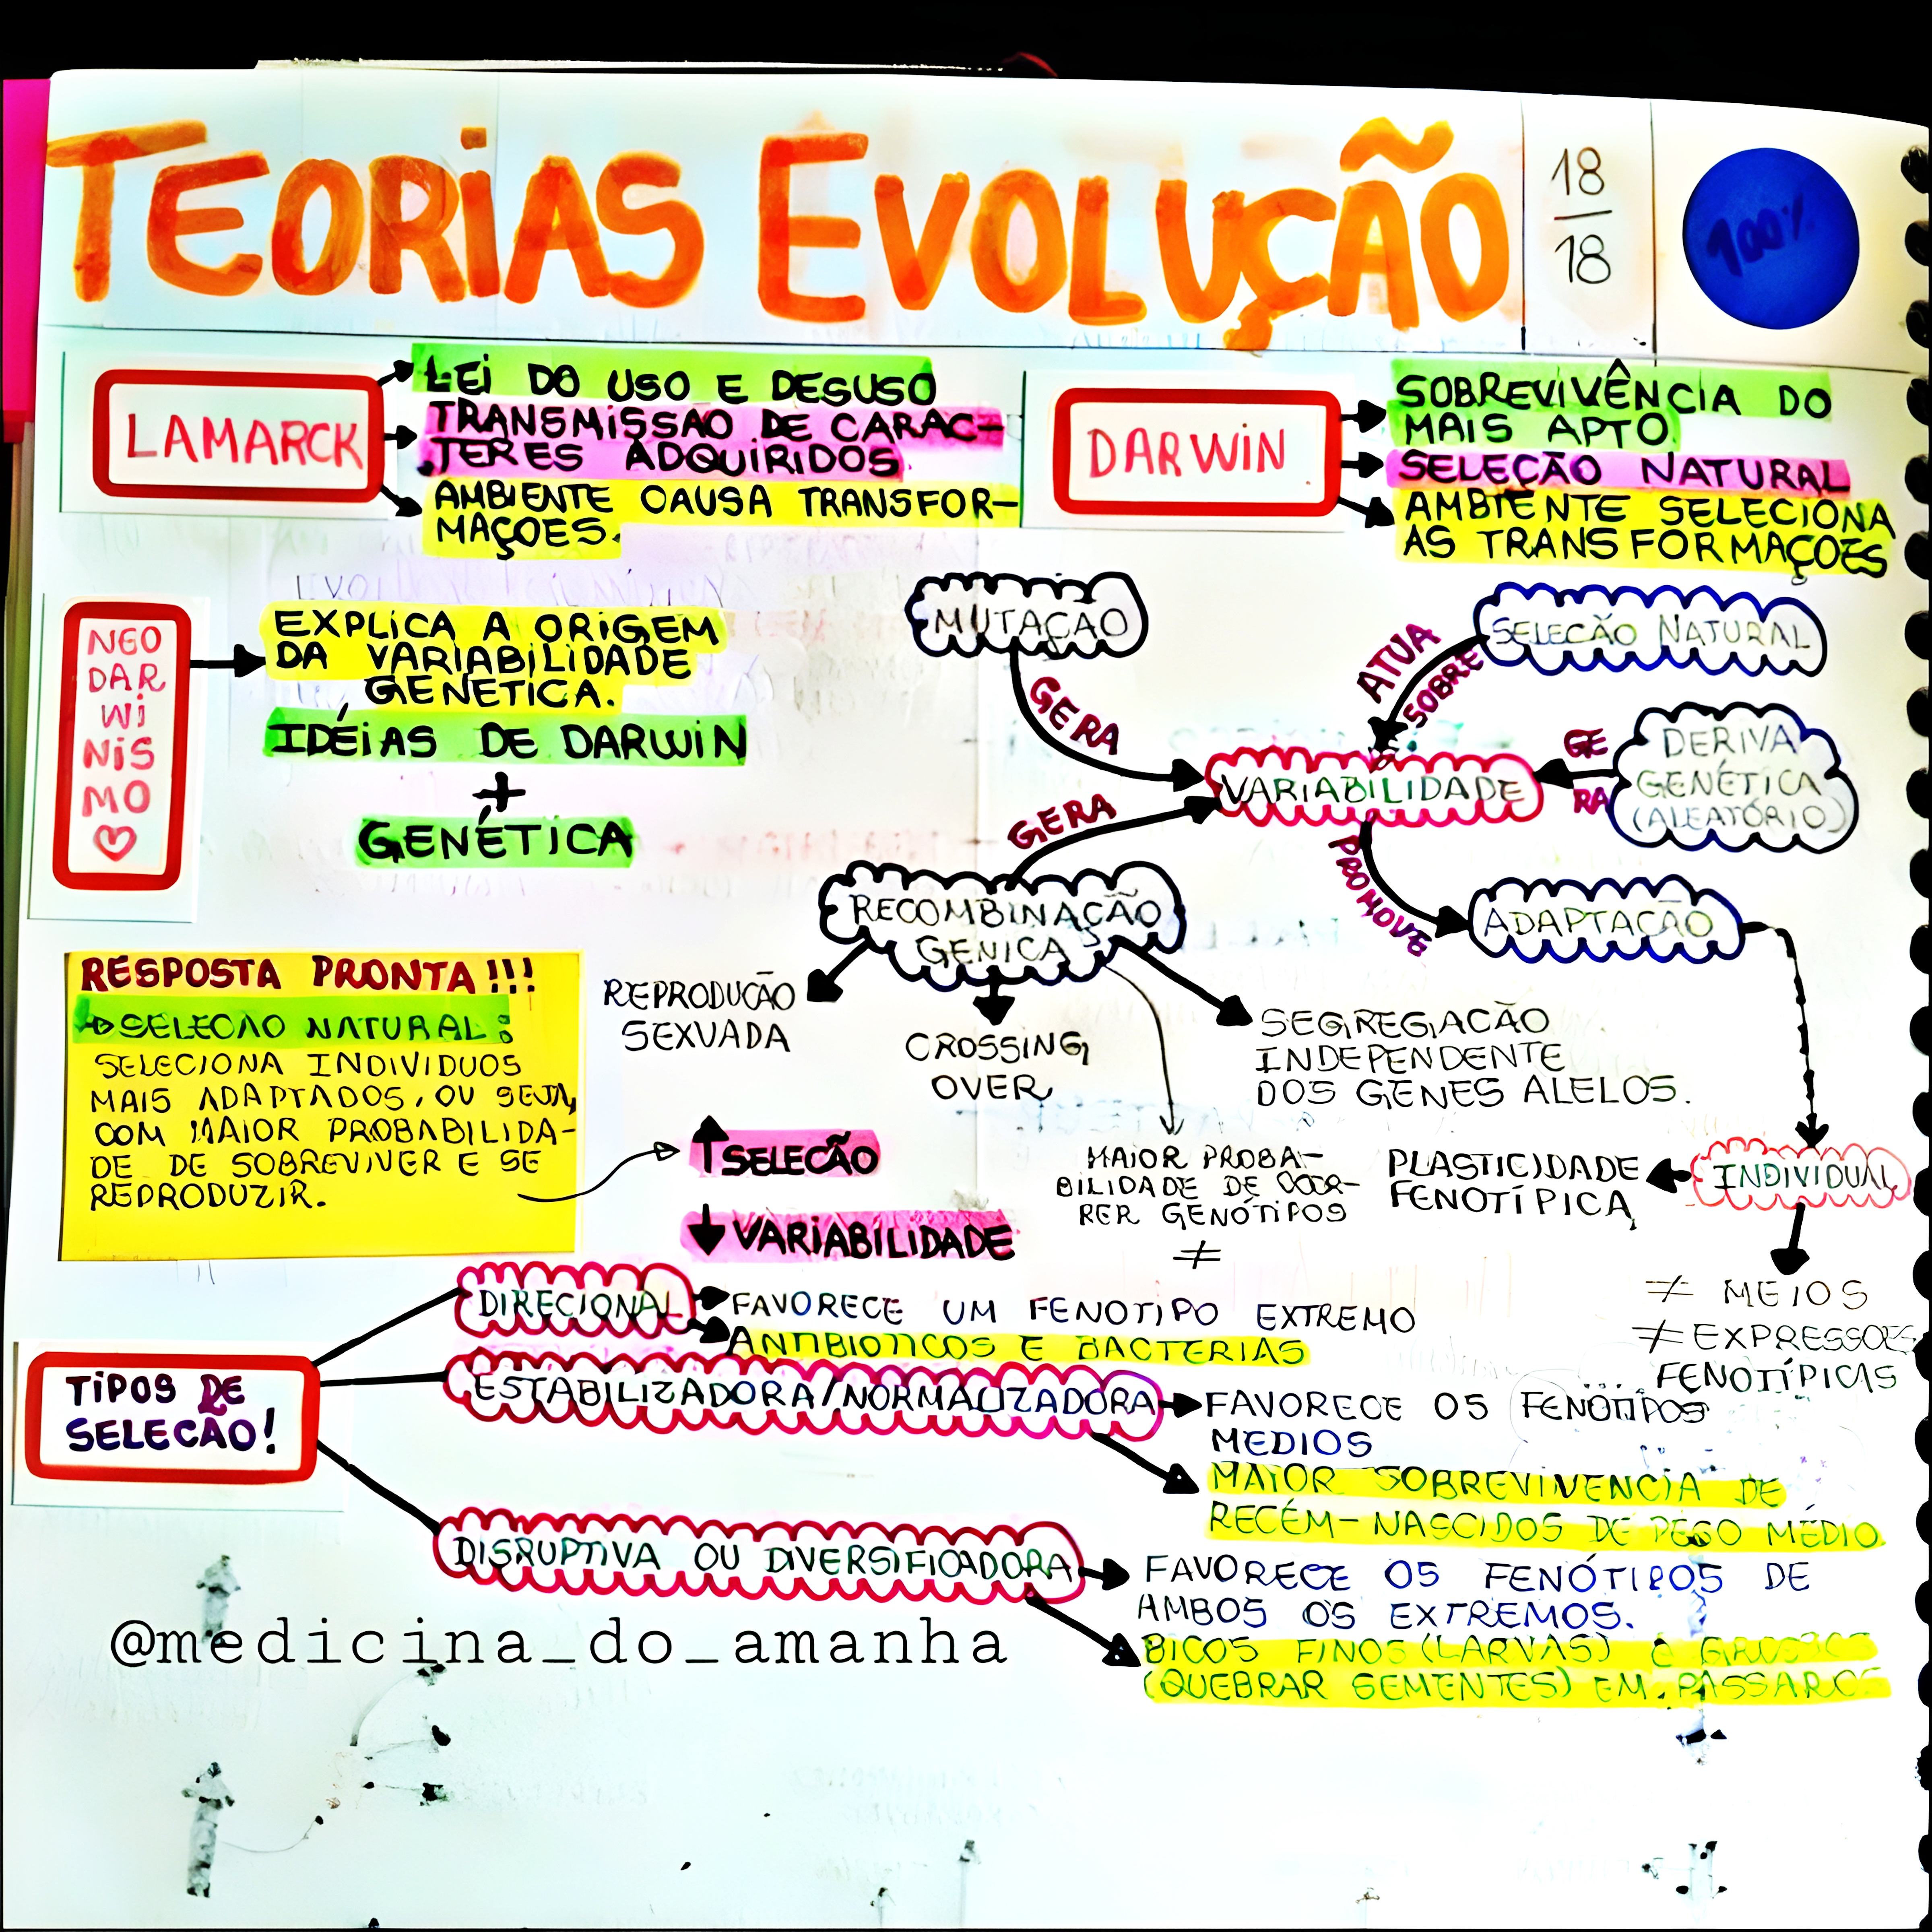 TEORIAS EVOLUÇÃO
18
18
100%
LAMARCK
LEI DO USO E DESUSO
TRANSMISSAO DE CARAC-
TERES ADQUIRIDOS.
AMBIENTE CAUSA TRANSFOR-
MAÇOES.
DARWIN
SOBREVIVÊNCIA DO
MAIS APTO.
SELEÇÃO NATURAL
AMBIENTE SELECIONA
AS TRANSFORMAÇOES
NEO
DAR
Wi
NIS
MO
EXPLICA A ORIGEM
DA VARIABILIDADE
GENETICA.
IDÉIAS DE DARWIN
+
GENÉTICA
MUTAÇÃO
GERA
SELECÃO NATURAL
ATUA
SOBRE
VARIABILIDADE
GE
RA
DERIVA
GENÉTICA
(ALEATÓRIO)
GERA
PROMOVE
RECOMBINAÇÃO
GENICA
ADAPTACÃO
REPRODUCÃO
SEXUADA
CROSSING
OVER
SEGREGACÃO
INDEPENDENTE
DOS GENES ALELOS.
MAIOR PROBA-
BILIDADE DE OCOR-
RER GENÓTIPOS
≠
INDIVIDUAL
PLASTICIDADE
FENOTÍPICA
≠ MEIOS
≠ EXPRESSOES
FENOTÍPICAS
RESPOSTA PRONTA!!!
SELECAO NATURAL:
SELECIONA INDIVIDUOS
MAIS ADAPTADOS, OU SEJA,
COM MAIOR PROBABILIDA-
DE DE SOBREVIVER E SE
REPRODUZIR.
↑SELECÃO
↓VARIABILIDADE
TIPOS DE
SELECÃO!
DIRECIONAL
FAVORECE UM FENOTIPO EXTREMO
ANTIBIOTICOS E BACTERIAS
ESTABILIZADORA/NORMALIZADORA
FAVORECE OS FENÓTIPOS
MEDIOS
MAIOR SOBREVIVENCIA DE
RECÉM-NASCIDOS DE PESO MÉDIO.
DISRUPTIVA OU DIVERSIFICADORA
FAVORECE OS FENÓTIPOS DE
AMBOS OS EXTREMOS.
BICOS FINOS (LARVAS) E
(QUEBRAR SEMENTES) EM PÁSSAROS
@medicina_do_amanha